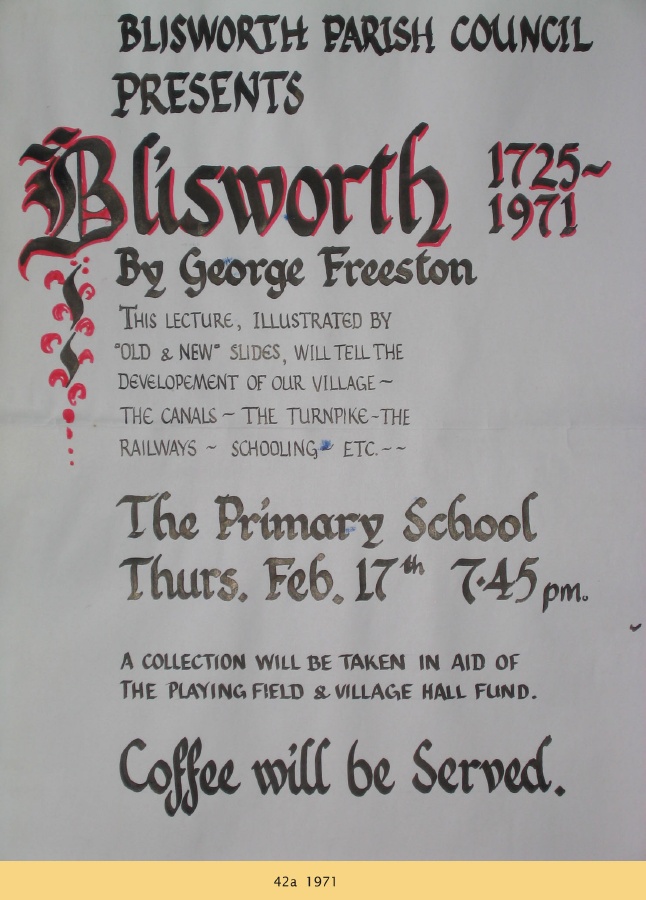 BLISWORTH PARISH COUNCIL
PRESENTS
Blisworth 1725~
1971
By George Freeston
THIS LECTURE, ILLUSTRATED BY
"OLD & NEW" SLIDES, WILL TELL THE
DEVELOPEMENT OF OUR VILLAGE ~
THE CANALS ~ THE TURNPIKE - THE
RAILWAYS ~ SCHOOLING ETC. ~~
The Primary School
Thurs. Feb. 17th 7·45 pm.
A COLLECTION WILL BE TAKEN IN AID OF
THE PLAYING FIELD & VILLAGE HALL FUND.
Coffee will be Served.
42a 1971